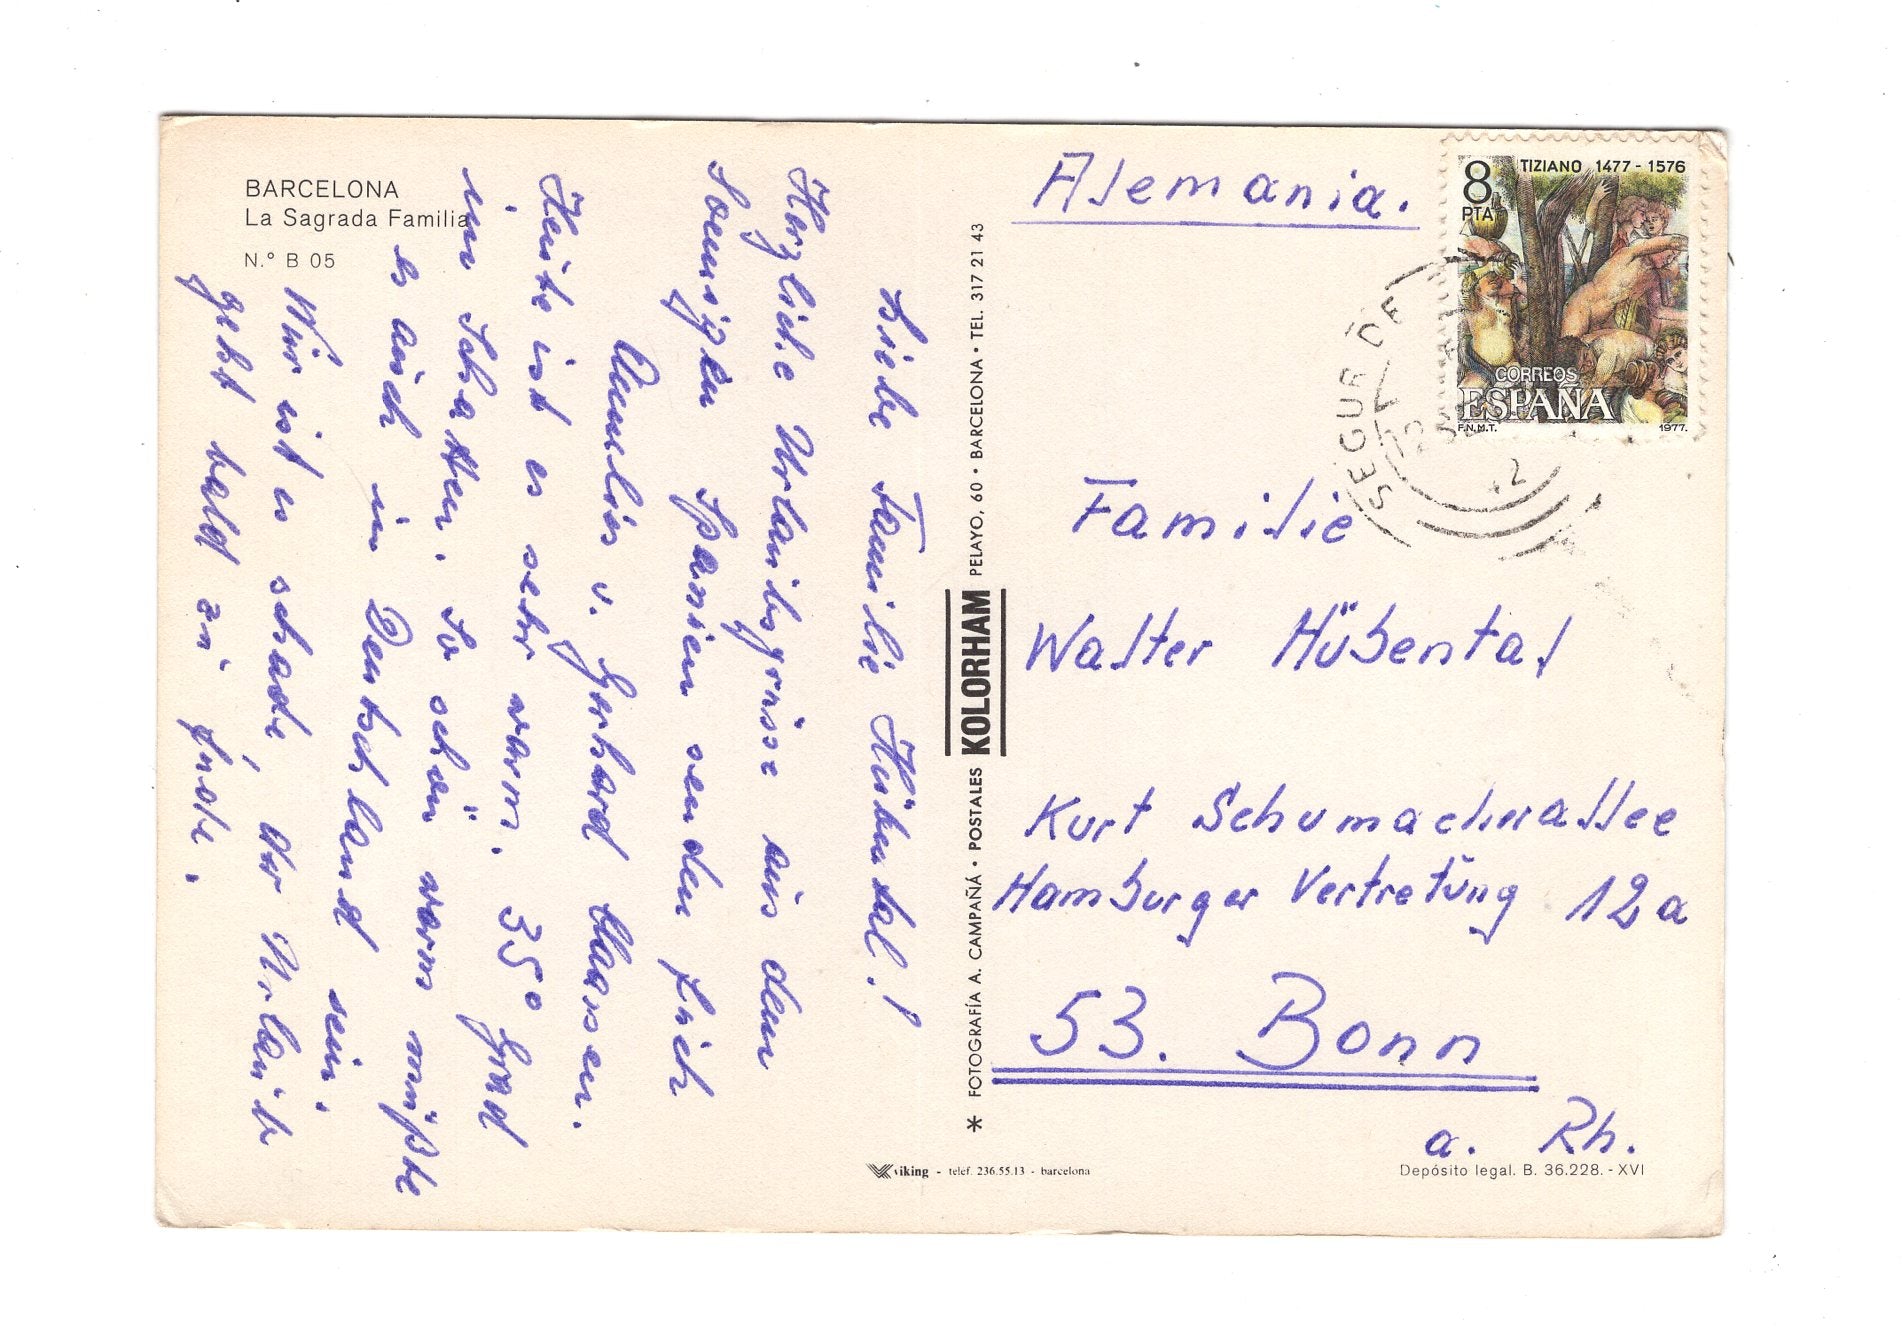 BARCELONA
La Sagrada Familia
N.º B 05
Liebe Familie Hübental!
Herzliche Urlaubsgrüsse aus dem
Sonnigen Spanien senden Euch
Annelies u. Gerhard Maassen.
Heute ist es sehr warm. 35° Grad
im Schatten. So schön warm müßte
es auch in Deutschland sein.
Nur ist es schade, der Urlaub
geht bald zu Ende.
* FOTOGRAFÍA A. CAMPAÑÁ • POSTALES KOLORHAM PELAYO, 60 • BARCELONA • TEL. 317 21 43
viking - telef. 236.55.13 - barcelona
Alemania.
8 PTA
TIZIANO 1477 - 1576
CORREOS
ESPAÑA
F.N.M.T. 1977.
SEGUR DE
Familie
Walter Hübental
Kurt Schumacherallee
Hamburger Vertretung 12a
53. Bonn
a. Rh.
Depósito legal. B. 36.228. - XVI